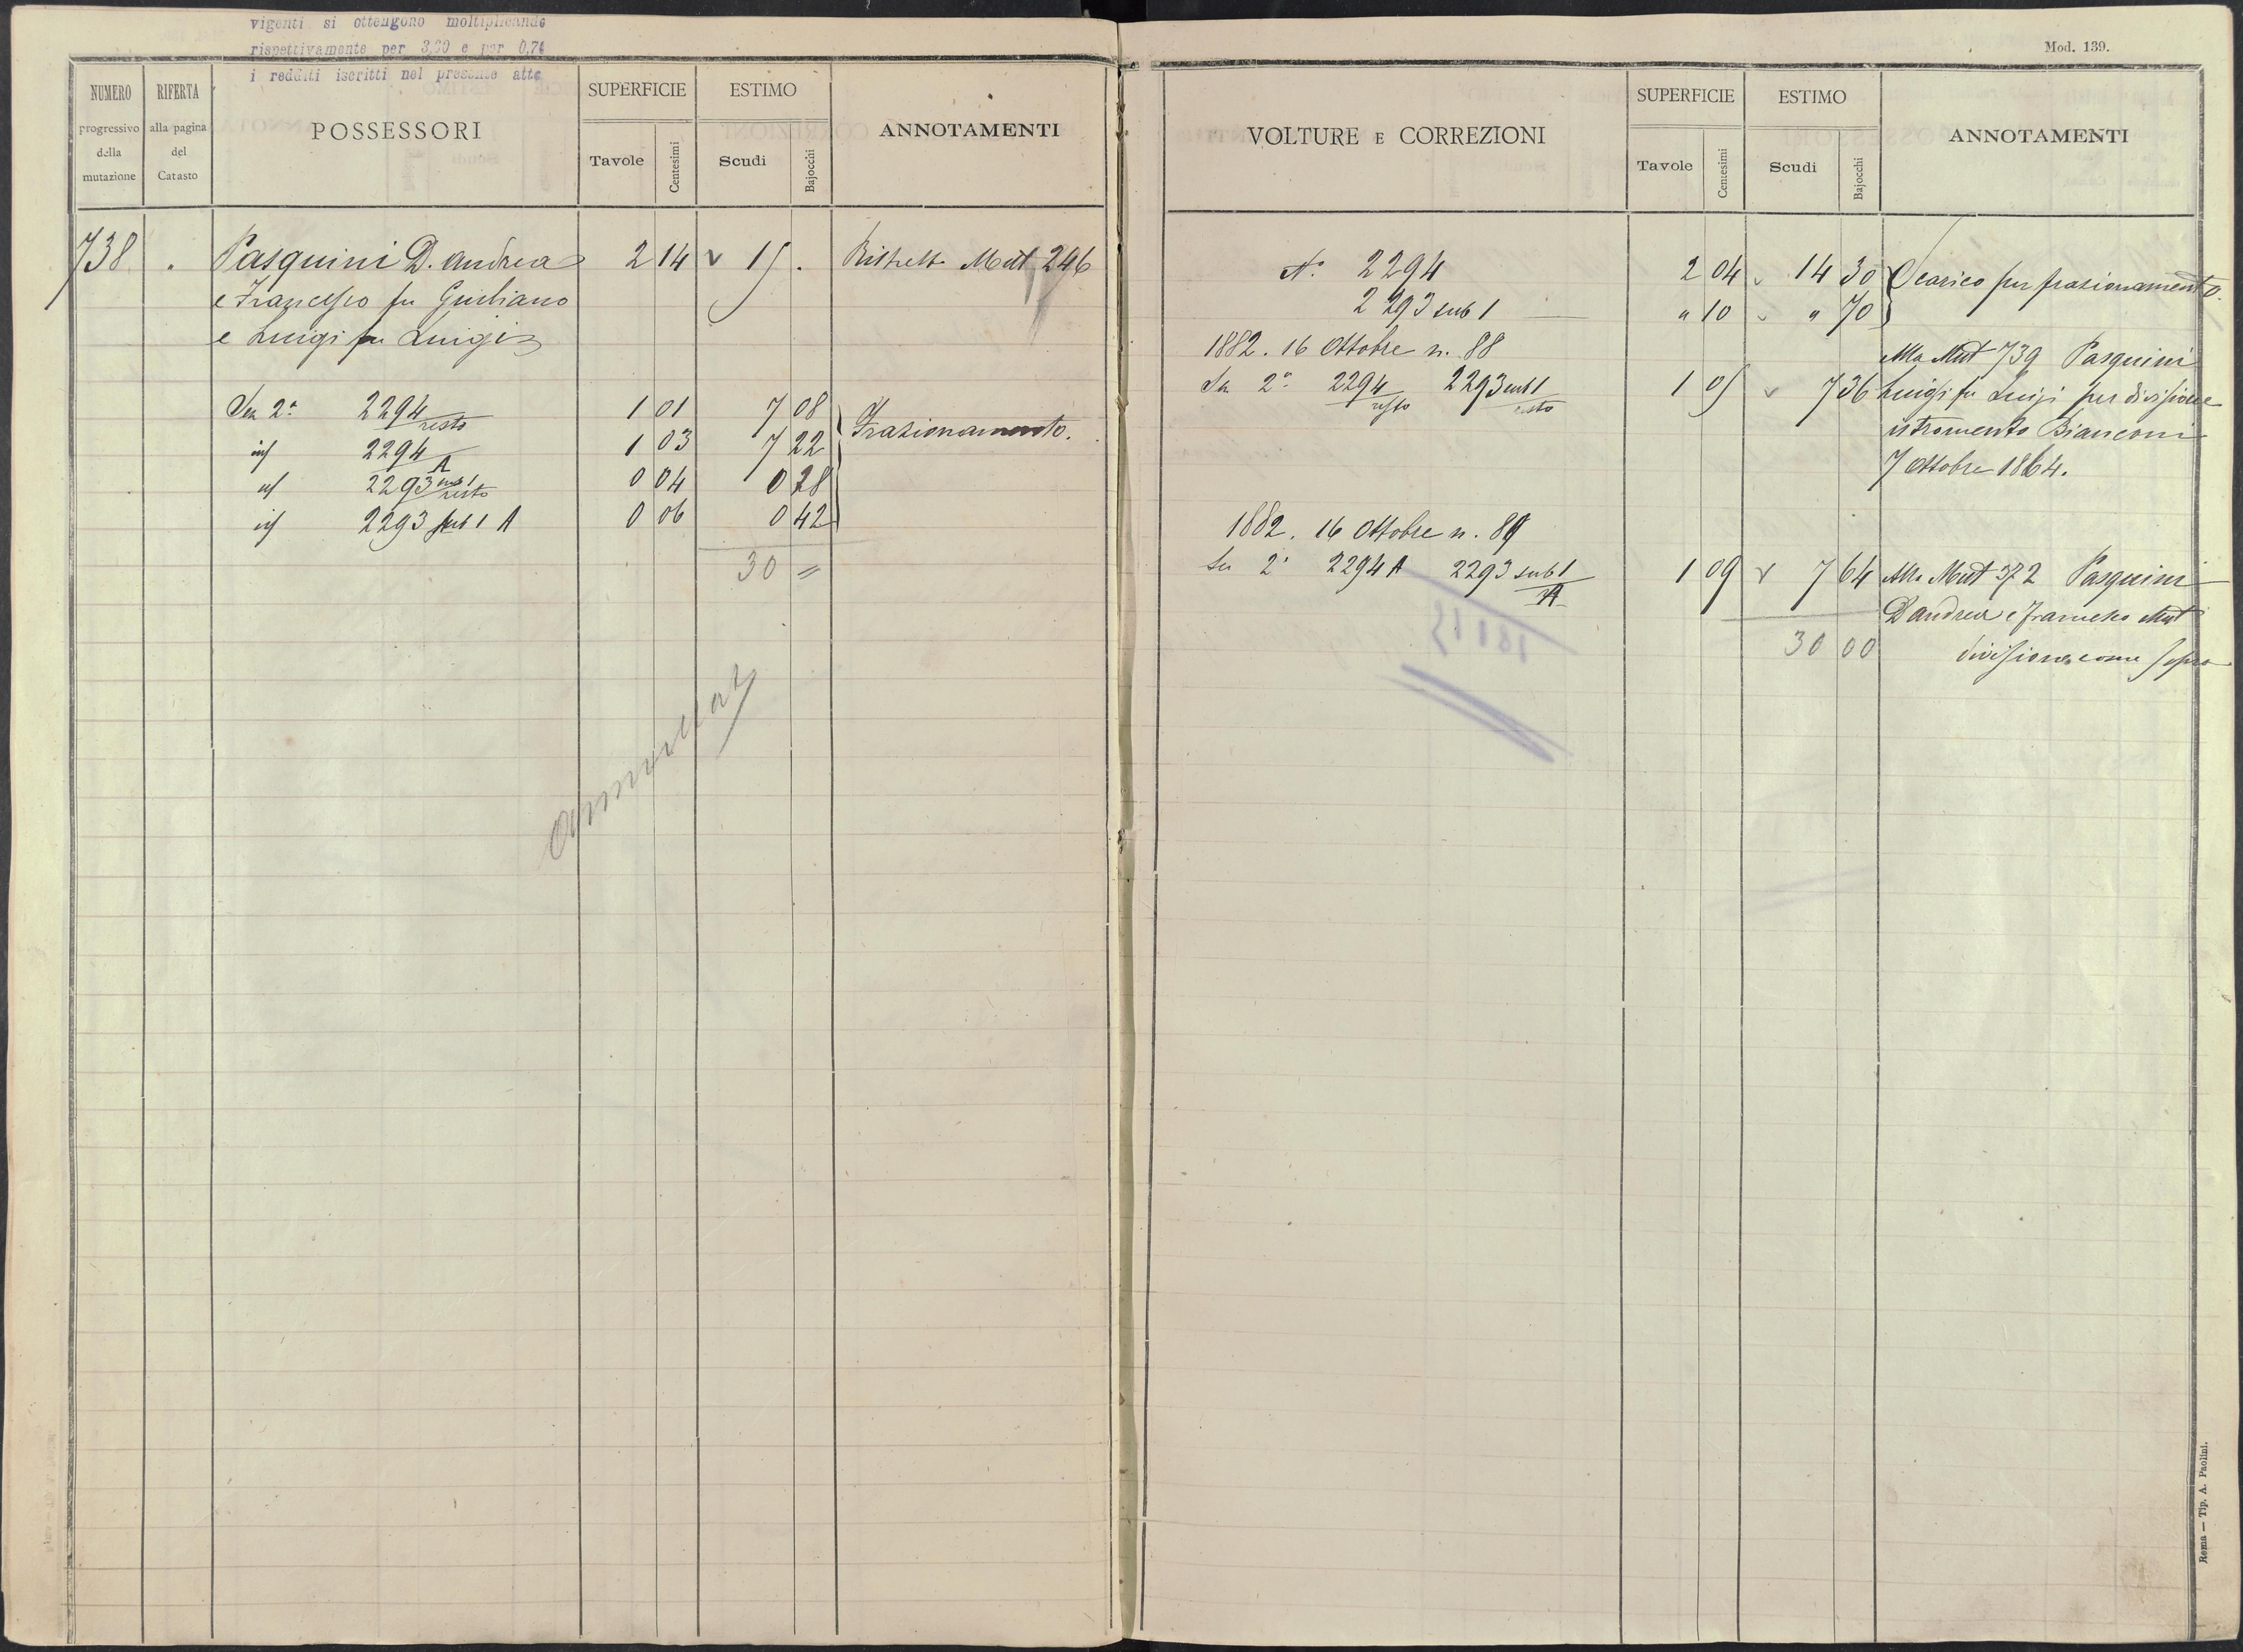 vigenti si ottengono moltiplicando
rispettivamente per 3,60 e per 0,74
i redditi iscritti nel presente atto
NUMERO
progressivo
della
mutazione
RIFERTA
alla pagina
del
Catasto
POSSESSORI
SUPERFICIE
Tavole
Centesimi
ESTIMO
Scudi
Bajocchi
ANNOTAMENTI
738 . Pasquini D. Andrea 2 14 15 . Mut 246
e Francesco fu Giuliano
e Luigi fu Luigi
Sez 2ª 2294 resto 1 01 7 08
2294 A 1 03 7 22 Frazionamento.
2293 sub 1 resto 0 04 0 28
2293 sub 1 A 0 06 0 42
30 =
Mod. 139.
VOLTURE E CORREZIONI
SUPERFICIE
Tavole
Centesimi
ESTIMO
Scudi
Bajocchi
ANNOTAMENTI
N. 2294 2 04 14 30 Scarico per frazionamento.
2293 sub 1 " 10 " 70
1882. 16 Ottobre n. 88
Alla Mut 739 Pasquini
Sez 2ª 2294 resto 2293 sub 1 resto 1 05 7 36 Luigi fu Luigi per divisione
istromento Bianconi
7 Ottobre 1864.
1882. 16 Ottobre n. 89
Sez 2ª 2294 A 2293 sub 1 A 1 09 7 64 Alla Mut 372 Pasquini
D Andrea e Francesco Mut
30 00 divisione come sopra
Roma — Tip. A. Paolini.